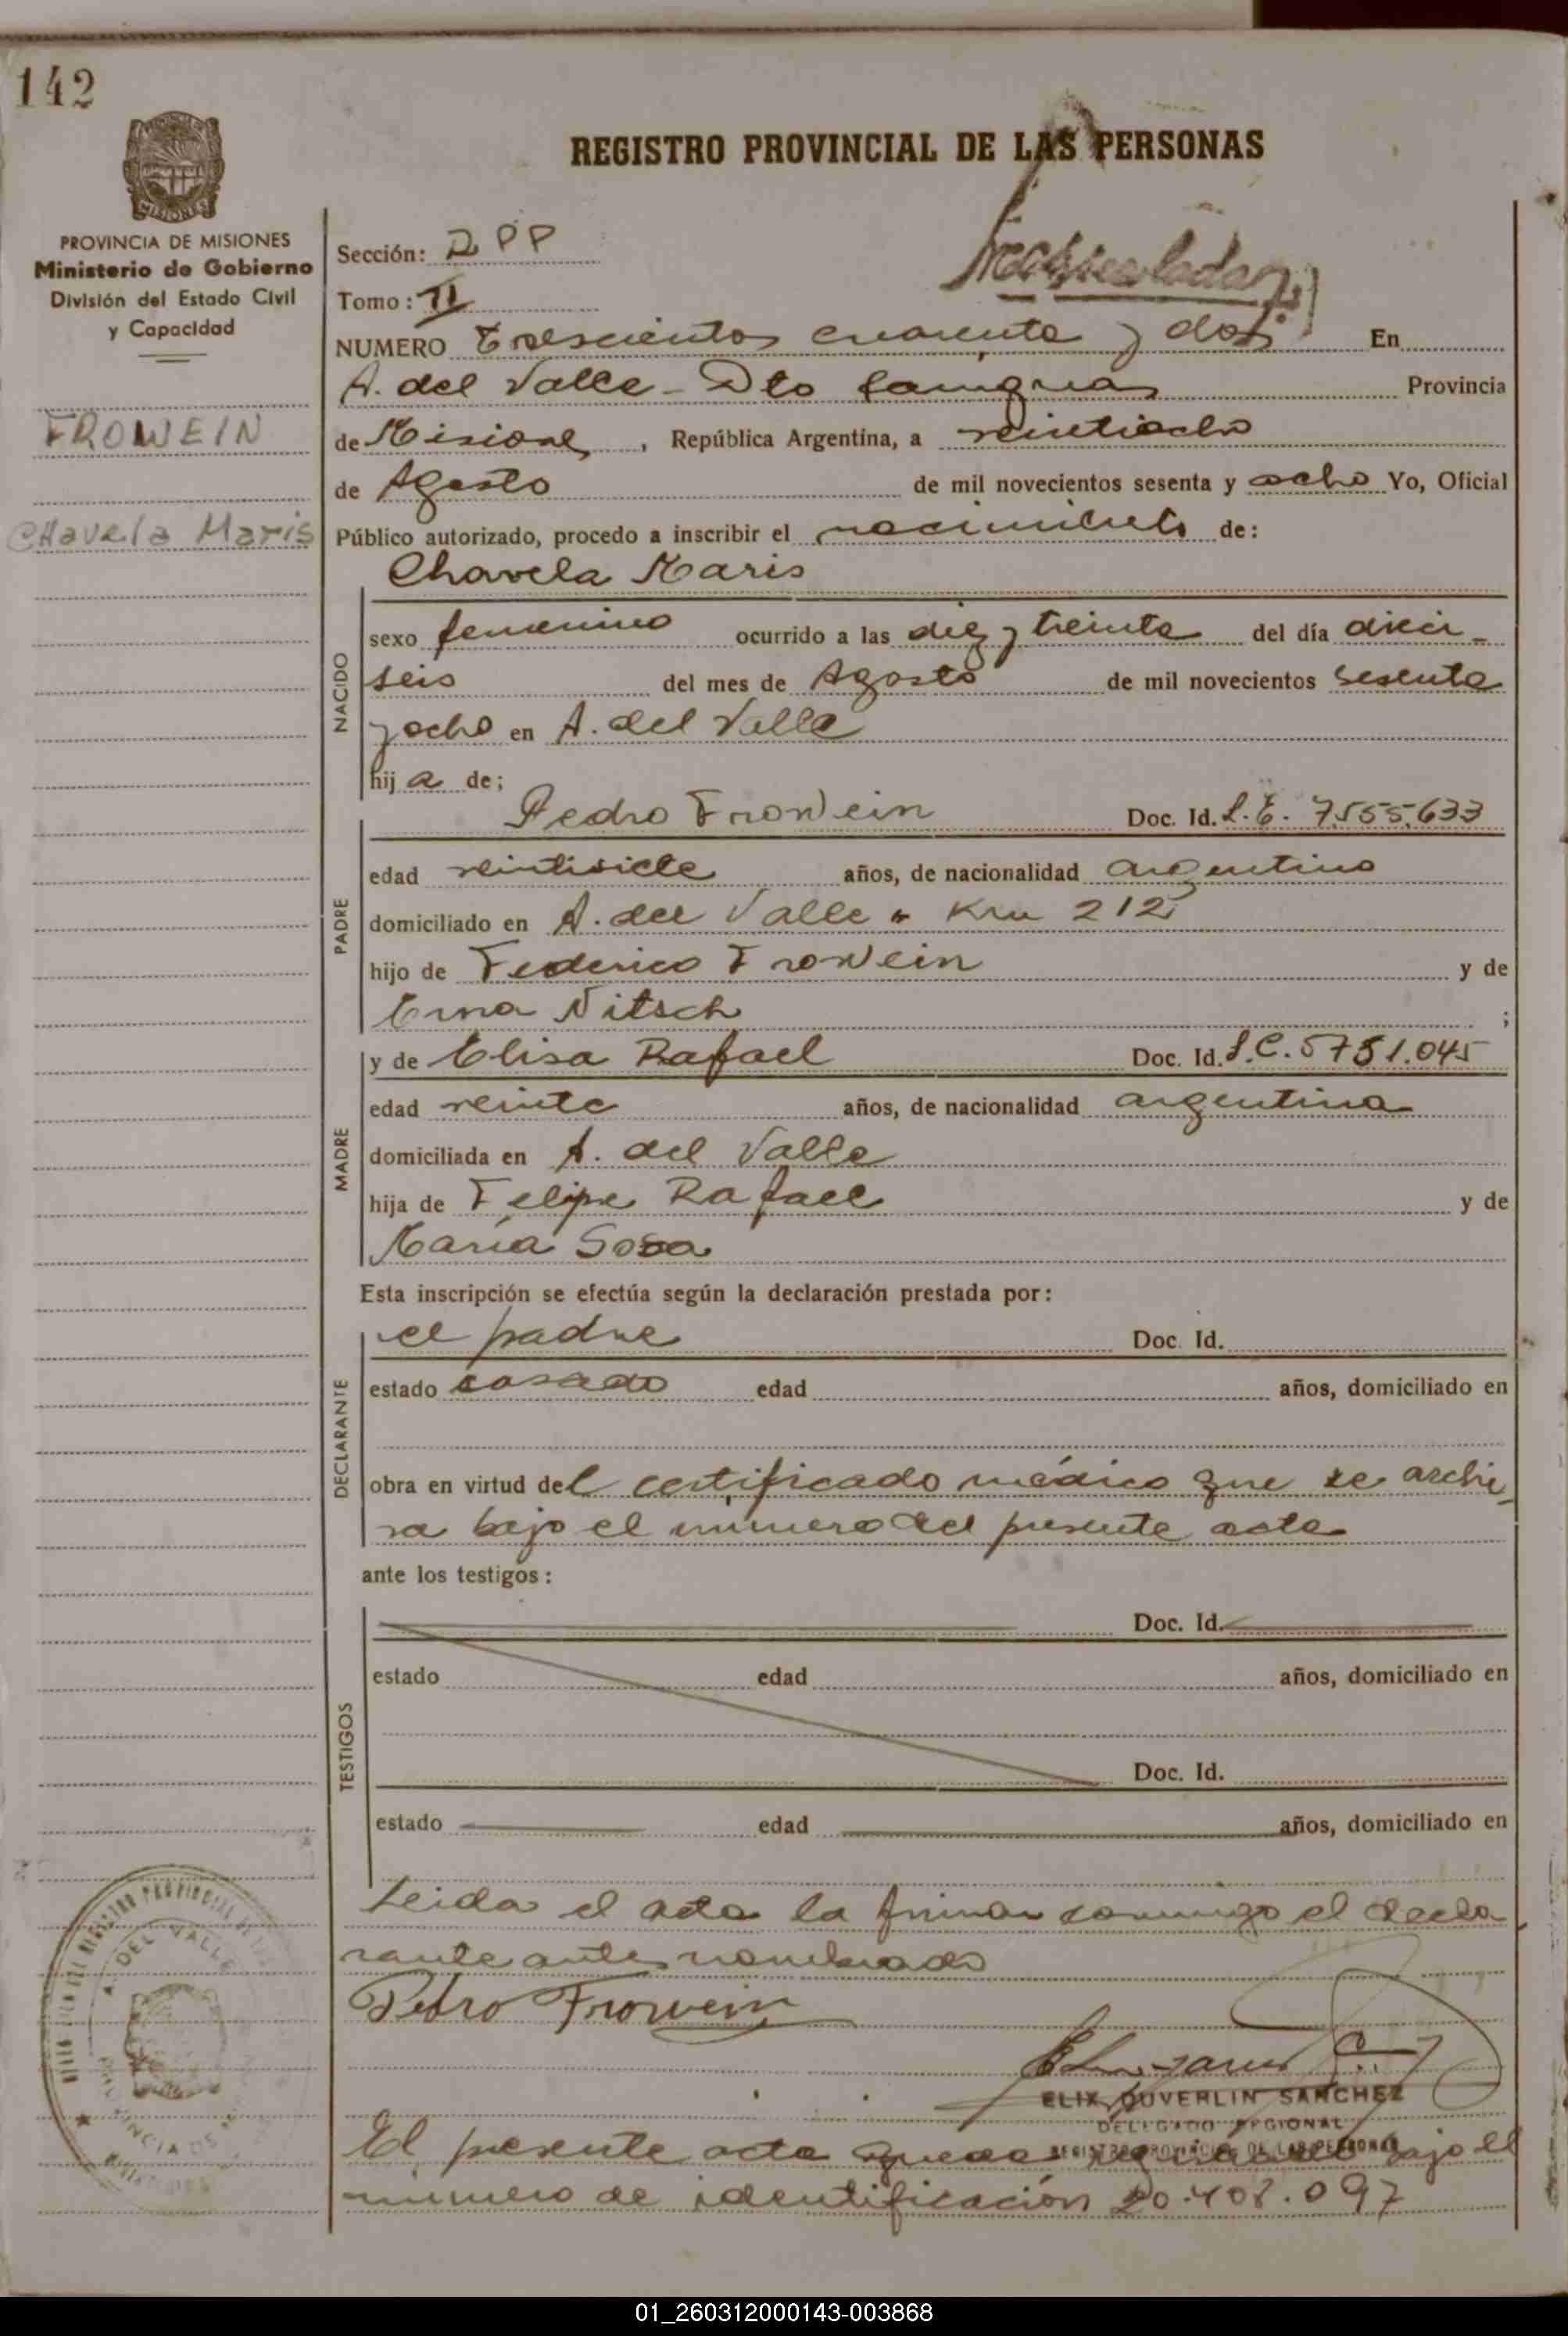 142
REGISTRO PROVINCIAL DE LAS PERSONAS
MISIONES
PROVINCIA DE MISIONES
Ministerio de Gobierno
División del Estado Civil
y Capacidad
FROWEIN
CHavela Maris
Sección: DPP
Tomo: II
NUMERO Trescientos cuarenta y dos En
A. del Valle - Dto Cainguas Provincia
de Misiones, República Argentina, a veintiocho
de Agosto de mil novecientos sesenta y ocho Yo, Oficial
Público autorizado, procedo a inscribir el nacimiento de:
Chavela Maris
NACIDO
sexo femenino ocurrido a las diez y treinta del día dieci-
seis del mes de Agosto de mil novecientos sesenta
y ocho en A. del Valle
hija de;
PADRE
Pedro Frowein Doc. Id. L.E. 7.555.633
edad veintisiete años, de nacionalidad argentino
domiciliado en A. del Valle - Km 212
hijo de Federico Frowein y de
Erna Nitsch ;
MADRE
y de Elisa Rafael Doc. Id. L.C. 5751.045
edad veinte años, de nacionalidad argentina
domiciliada en A. del Valle
hija de Felipe Rafael y de
María Sosa
Esta inscripción se efectúa según la declaración prestada por:
DECLARANTE
el padre Doc. Id.
estado casado edad años, domiciliado en
obra en virtud del certificado médico que se archi-
va bajo el número del presente acta
ante los testigos:
TESTIGOS
Doc. Id.
estado edad años, domiciliado en
Doc. Id.
estado edad años, domiciliado en
Leida el acta la firman conmigo el decla-
rante antes nombrado
Pedro Frowein
ELIX DUVERLIN SANCHEZ
DELEGADO REGIONAL
REGISTRO PROVINCIAL DE LAS PERSONAS
A. DEL VALLE
El presente acta queda bajo el
número de identificación 20.408.097
01_260312000143-003868